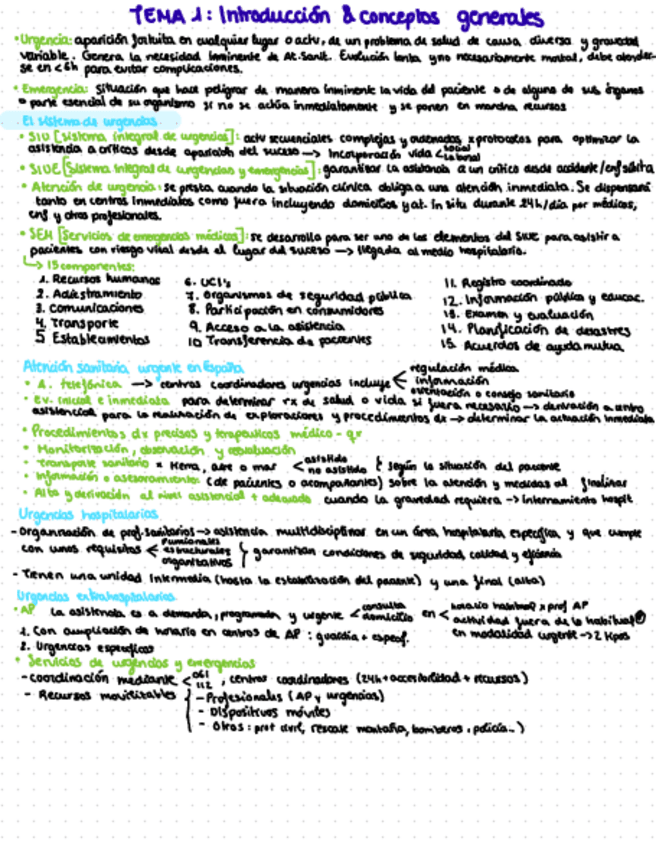 TEMA 1: Introducción & conceptos generales
• Urgencia: aparición fortuita en cualquier lugar o activ, de un problema de salud de causa diversa y gravedad
variable. Genera la necesidad inminente de At. Sanit. Evolución lenta y no necesariamente mortal, debe atender-
se en <6h para evitar complicaciones.
• Emergencia: situación que hace peligrar de manera inminente la vida del paciente o de alguno de sus órganos
o parte esencial de su organismo si no se actúa inmediatamente y se ponen en marcha recursos
El sistema de urgencias
• SIU [sistema integral de urgencias]: activ secuenciales complejas y ordenadas x protocolos para optimizar la
asistencia a críticos desde aparición del suceso → Incorporación vida < social laboral
• SIUE [Sistema integral de urgencias y emergencias]: garantizar la asistencia a un crítico desde accidente/enf súbita
• Atención de urgencia: se presta cuando la situación clínica obliga a una atención inmediata. Se dispensará
tanto en centros inmediatos como fuera incluyendo domicilios y at. in situ durante 24h/día por médicos,
enf y otros profesionales.
• SEM [Servicios de emergencias médicas]: se desarrolla para ser uno de los elementos del SIUE para asistir a
pacientes con riesgo vital desde el lugar del suceso → llegada al medio hospitalario.
↳ 15 componentes:
1. Recursos humanos 6. UCI's 11. Registro coordinado
2. Adiestramiento 7. Organismos de seguridad pública 12. Información pública y educac.
3. Comunicaciones 8. Participación en consumidores 13. Examen y evaluación
4. Transporte 9. Acceso a la asistencia 14. Planificación de desastres
5 Establecimientos 10 Transferencia de pacientes 15. Acuerdos de ayuda mutua.
Atención sanitaria urgente en España
• A. telefónica → centros coordinadores urgencias incluye < regulación médica información orientación o consejo sanitario
• Ev. inicial e inmediata para determinar rx de salud o vida si fuera necesario → derivación a centro
asistencial para la realización de exploraciones y procedimientos dx → determinar la actuación inmediata
• Procedimientos dx precisos y terapeuticos médico-qx
• Monitorización, observación y reevaluación
• Transporte sanitario x tierra, aire o mar < asistido no asistido } según la situación del paciente
• Información o asesoramiento (de pacientes o acompañantes) sobre la atención y medidas al finalizar
• Alta y derivación al nivel asistencial + adecuado cuando la gravedad requiera → internamiento hospit
Urgencias hospitalarias
- Organización de prof. sanitarios → asistencia multidisciplinar en un área hospitalaria específica y que cumple
con unos requisitos < funcionales estructurales organizativos } garantizan condiciones de seguridad, calidad y eficiencia
- Tienen una unidad intermedia (hasta la estabilización del paciente) y una final (alta)
Urgencias extrahospitalarias
• AP la asistencia es a demanda, programada y urgente < consulta domicilio en < horario habitual x prof AP actividad fuera de lo habitual en modalidad urgente → 2 tipos
1. Con ampliación de horario en centros de AP: guardia + especf.
2. Urgencias específicas
• Servicios de urgencias y emergencias
- coordinación mediante < 061 112, centros coordinadores (24h + accesibilidad + recursos)
- Recursos movilizables { - Profesionales (AP y urgencias)
- Dispositivos móviles
- Otros: prot civil, rescate montaña, bomberos, policía...)